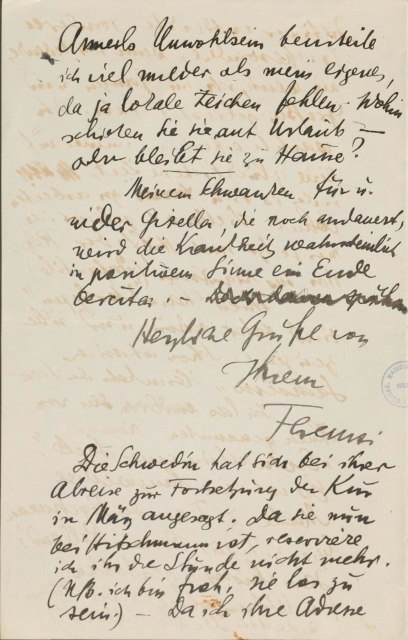 Annerls Unwohlsein beurteile
ich viel milder als mein eigenes,
da ja lokale Zeichen fehlen. Wohin
schicken Sie sie auf Urlaub –
oder bleibt sie zu Hause?
Meinem Schwanken für u.
wider Gisella, die noch andauert,
wird die Krankheit wahrscheinlich
in positivem Sinne ein Ende
bereiten. –
Herzliche Grüße von
Ihrem
Ferenczi
Die Schwedin hat sich bei ihrer
Abreise zur Fortsetzung der Kur
in März angesagt. Da sie nun
bei Hitschmann ist, reserviere
ich ihr die Stunde nicht mehr.
(NB. ich bin froh, sie los zu
sein) – Da ich ihre Adresse